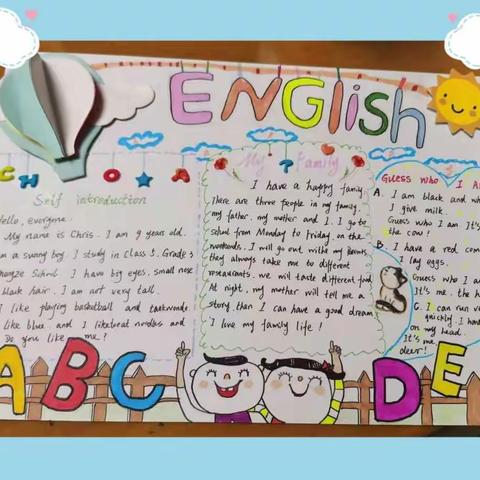 ENGlish
C H O A
Self introduction
Hello, everyone.
My name is Chris. I am 9 years old.
am a sunny boy. I study in Class 3, Grade 3
School. I have big eyes, small nose
black hair. I am not very tall
I like playing basketball and taekwondo.
like blue. and I like eat noodles and
Do you like me?
My Family
I have a happy family.
There are three people in my family,
my father, my mother and I. I go to
school from Monday to Friday, on the
weekends, I will go out with my parents,
they always take me to different
restaurants. we will taste different food
At night, my mother will tell me a
story, then I can have a good dream
I love my family life!
Guess who I A
A. I am black and wh
I give milk.
Guess who I am It's
the cow!
B. I have a red com
I lay eggs.
Guess who I am
It's me. the h
C. I can run ve
quickly. I ha
on my head.
It's me.
deer!
A B C D E